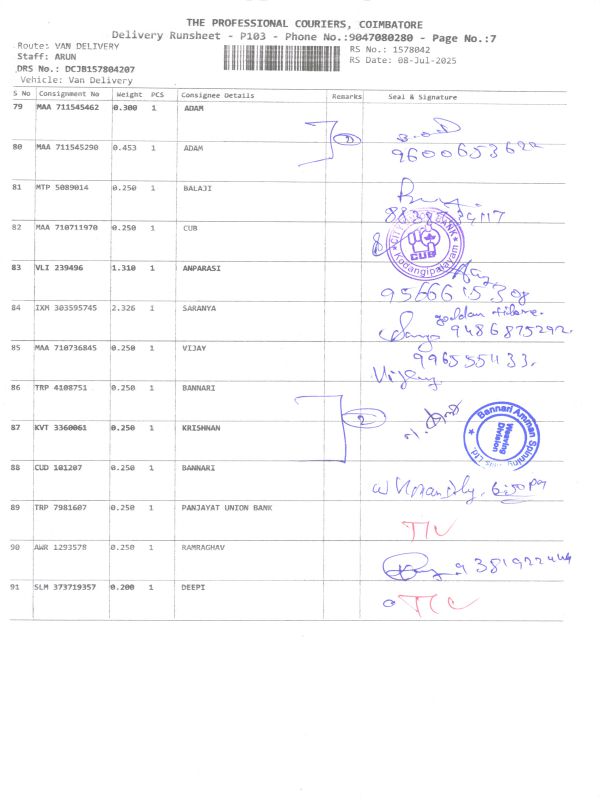 THE PROFESSIONAL COURIERS, COIMBATORE
Delivery Runsheet - P103 - Phone No.:9047080280 - Page No.:7
Route: VAN DELIVERY
RS No.: 1578042
Staff: ARUN
RS Date: 08-Jul-2025
DRS No.: DCJB157804207
Vehicle: Van Delivery
S No Consignment No Weight PCS Consignee Details Remarks Seal & Signature
79 MAA 711545462 0.300 1 ADAM
80 MAA 711545290 0.453 1 ADAM
9600653622
81 MTP 5089014 0.250 1 BALAJI
82 MAA 710711970 0.250 1 CUB
CITY UNION BANK
CUB
Kodangipalayam
83 VLI 239496 1.310 1 ANPARASI
84 IXM 303595745 2.326 1 SARANYA
9486875292.
85 MAA 710736845 0.250 1 VIJAY
9965551133.
Vijay
86 TRP 4108751 0.250 1 BANNARI
2
87 KVT 3360061 0.250 1 KRISHNAN
Bannari Amman Spinning Mills Ltd.
Weaving
Division
88 CUD 101207 0.250 1 BANNARI
6:50 PM
89 TRP 7981607 0.250 1 PANJAYAT UNION BANK
90 AWR 1293578 0.250 1 RAMRAGHAV
91 SLM 373719357 0.200 1 DEEPI